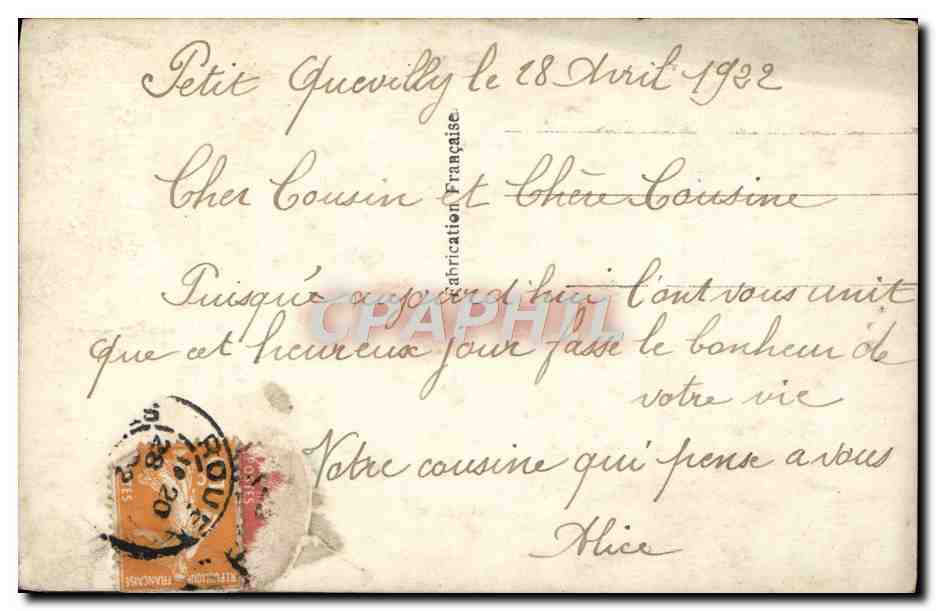 Petit Quevilly le 28 Avril 1922
Cher Cousin et Chère Cousine
Fabrication Française
Puisqué aujourd'hui l'ont vous unit
que cet heureux jour fasse le bonheur de
votre vie
Votre cousine qui pense a vous
Alice
CPAPHIL
ROUEN
28
20
POSTES
REPUBLIQUE
FRANÇAISE